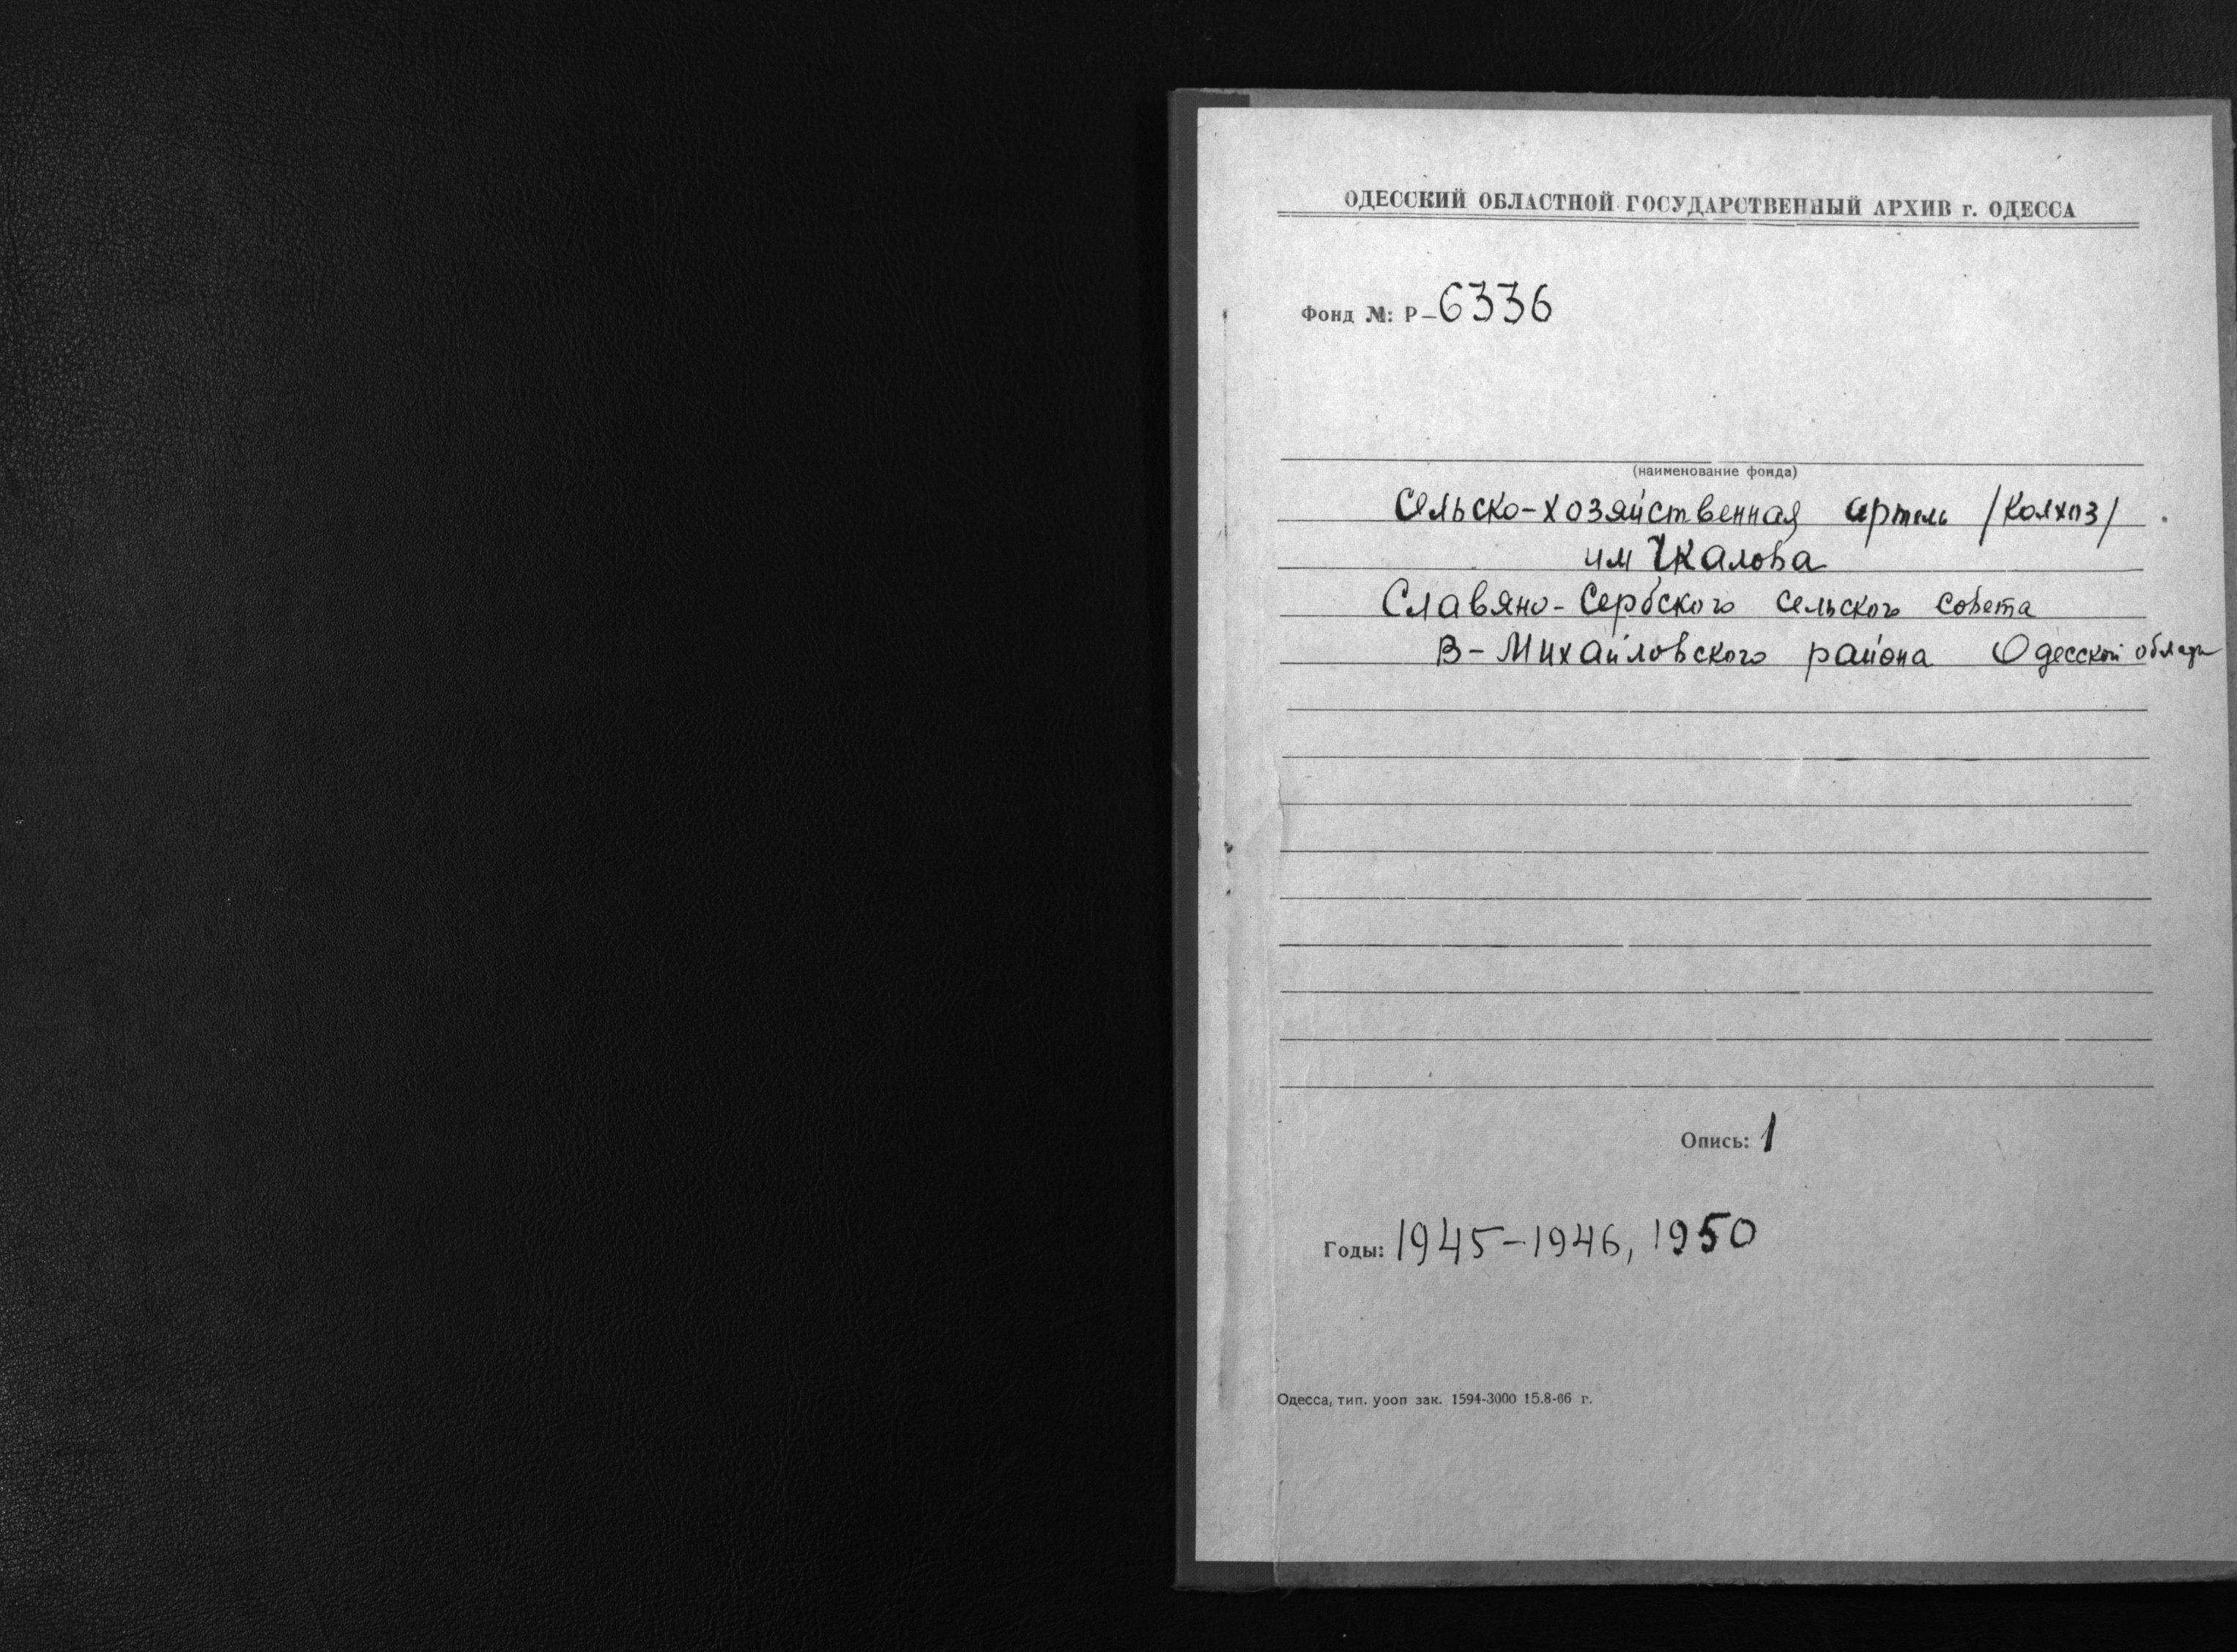 ОДЕССКИЙ ОБЛАСТНОЙ ГОСУДАРСТВЕННЫЙ АРХИВ г. ОДЕССА
Фонд №: Р-6336
(наименование фонда)
Сельско-хозяйственная артель /колхоз/
им Чкалова
Славяно-Сербского сельского совета
В-Михайловского района Одесской
Опись: 1
Годы: 1945-1946, 1950
Одесса, тип. уооп зак. 1594-3000 15.8-66 г.